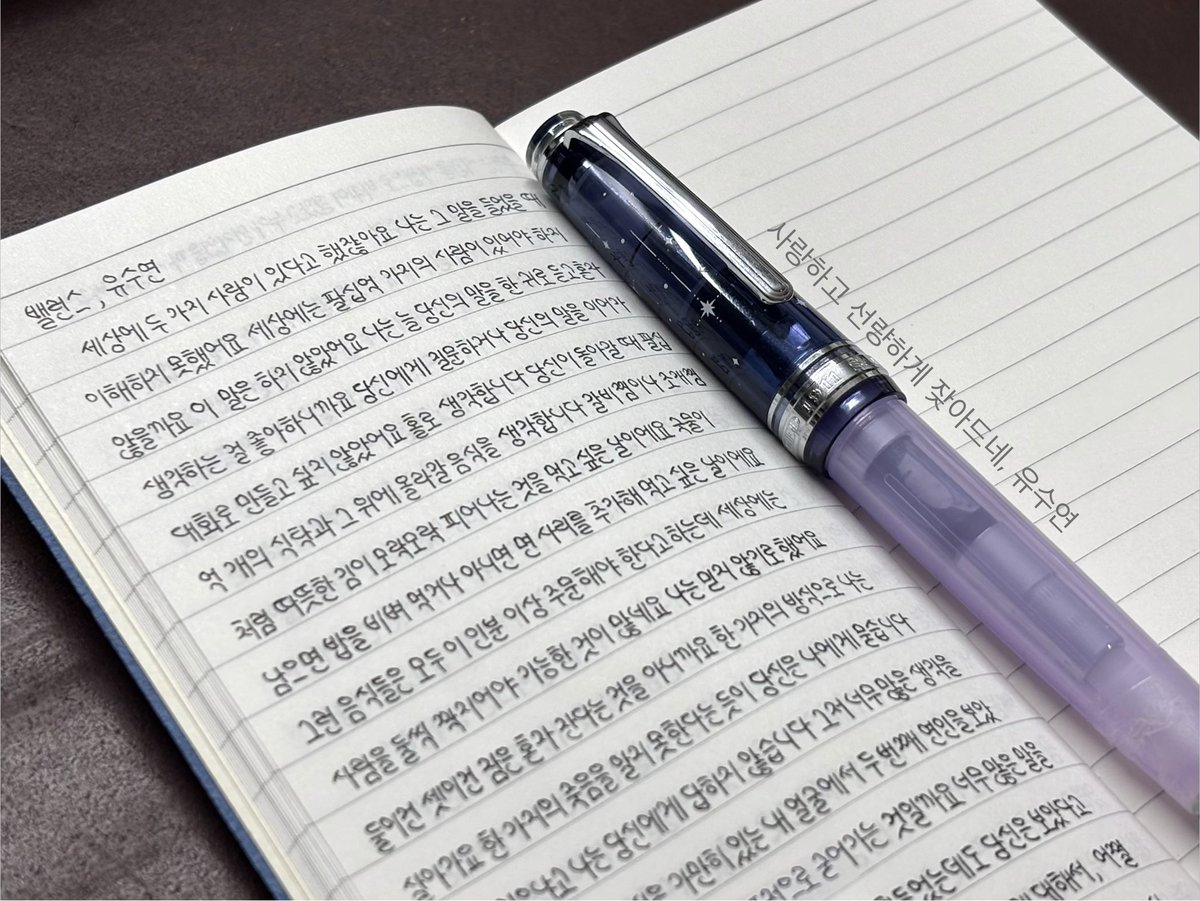 밸런스, 유수연
세상에 두 가지 사람이 있다고 했잖아요 나는 그 말을 들었을 때
이해하지 못했어요 세상에는 팔십억 가지의 사람이 있어야 하지
않을까요 이 말은 하지 않았어요 나는 늘 당신의 말을 한 귀로 듣고 혼자
생각하는 걸 좋아하니까요 당신에게 질문하거나 당신의 말을 이어가
대화로 만들고 싶지 않았어요 홀로 생각합니다 당신이 돌아갈 때 팔십
억 개의 식탁과 그 위에 올라갈 음식을 생각합니다 갈비찜이나 조개찜
처럼 따뜻한 김이 모락모락 피어나는 것을 먹고 싶은 날이에요 국물이
남으면 밥을 비벼 먹거나 아니면 면 사리를 추가해 먹고 싶은 날이에요
그런 음식들은 모두 이 인분 이상 주문해야 한다고 하는데 세상에는
사람을 둘씩 짝지어야 가능한 것이 많네요 나는 믿지 않기로 했어요
둘이건 셋이건 짐은 혼자 간다는 것을 아니까요 한 가지의 방식으로 나는
살아가요 한 가지의 죽음을 알지 못한다는 듯이 당신은 나에게 묻습니다
나는 당신에게 답하지 않습니다 그저 너무 많은 생각을
가만히 있는 내 얼굴에서 두 번째 연인을 보았
굳어가는 것일까요 너무 많은 말을
들었는데도 당신은 보았다고
대해서, 어쩔
사랑하고 선량하게 잦아드네, 유수연